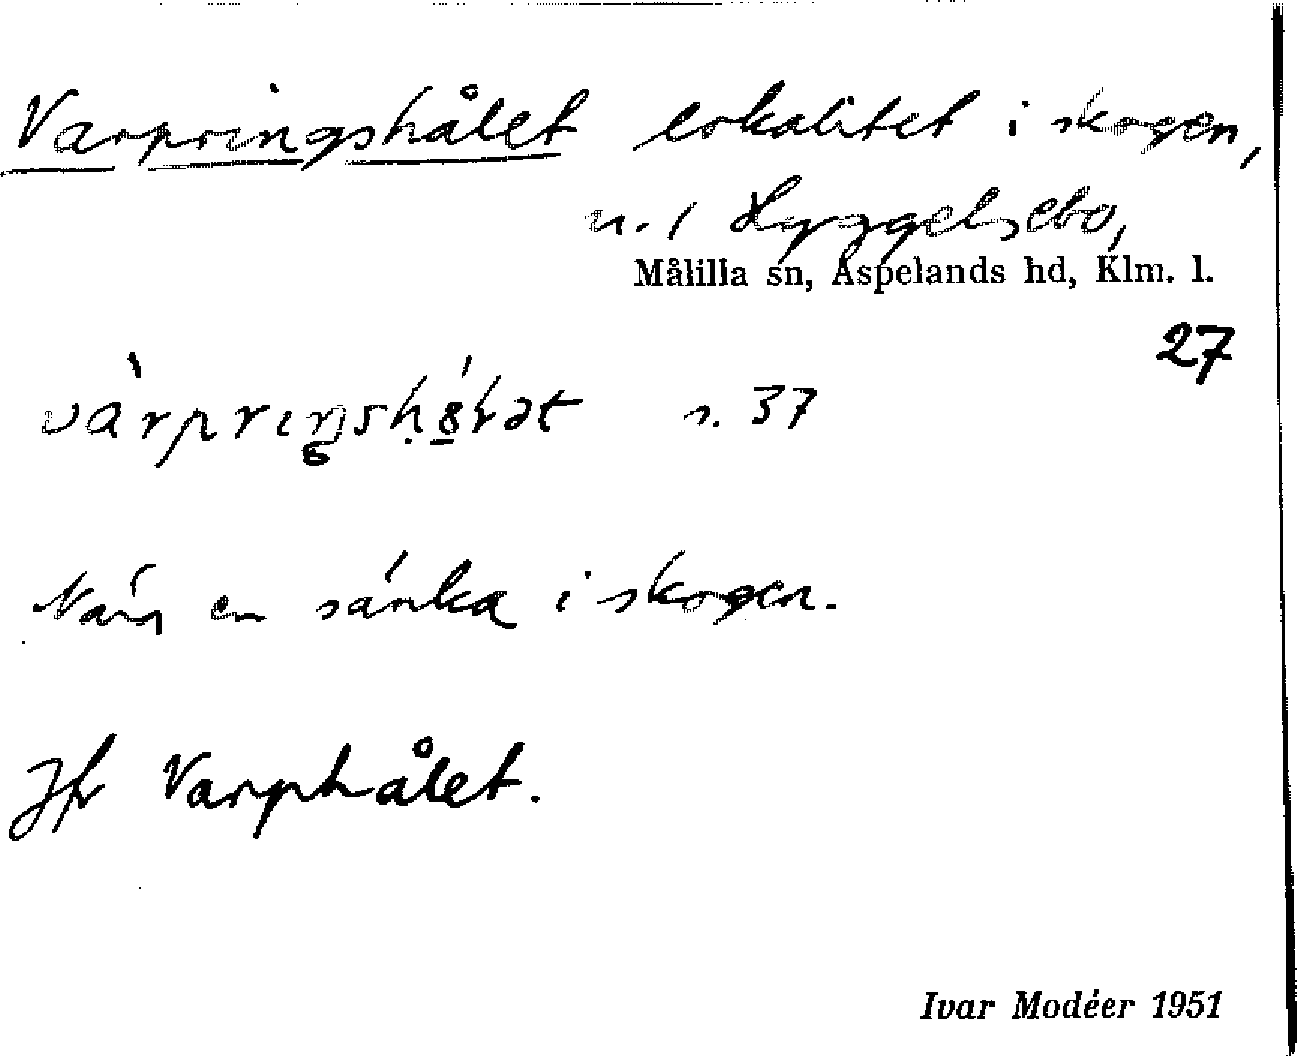 Varpringshålet lokalitet i skogen,
u. / Lyggelsebo,
Målilla sn, Aspelands hd, Klm. l.
27
s. 37
en sänka i skogen.
Jfr Varphålet.
Ivar Modéer 1951